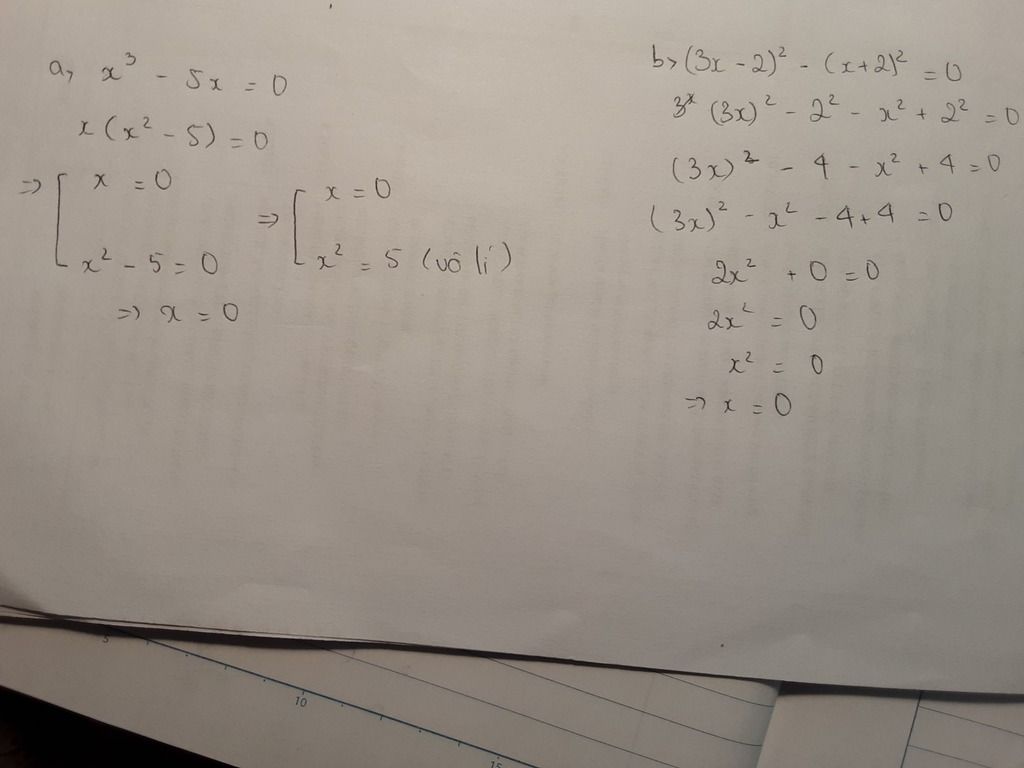 a, x³ - 5x = 0
x(x² - 5) = 0
=> [ x = 0
x² - 5 = 0
=> [ x = 0
x² = 5 (vô lí)
=> x = 0
b, (3x - 2)² - (x+2)² = 0
(3x)² - 2² - x² + 2² = 0
(3x)² - 4 - x² + 4 = 0
(3x)² - x² - 4 + 4 = 0
2x² + 0 = 0
2x² = 0
x² = 0
=> x = 0
5
10
15